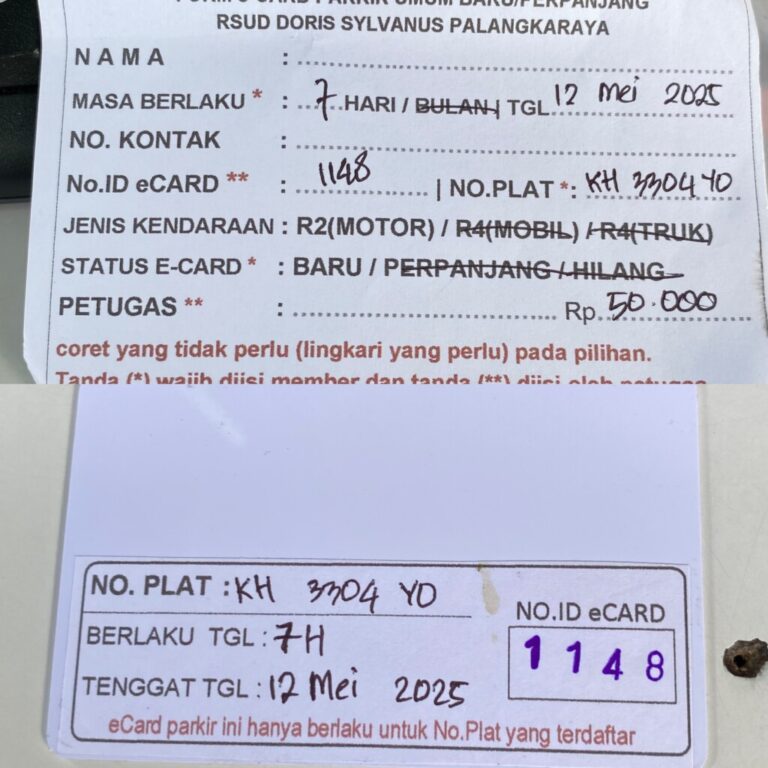 FORM e-CARD PARKIR UMUM BARU/PERPANJANG
RSUD DORIS SYLVANUS PALANGKARAYA
NAMA :
MASA BERLAKU * : 7 HARI / BULAN | TGL 12 Mei 2025
NO. KONTAK :
No.ID eCARD ** : 1148 | NO.PLAT *: KH 3304 YO
JENIS KENDARAAN : R2(MOTOR) / R4(MOBIL) / R4(TRUK)
STATUS E-CARD * : BARU / PERPANJANG / HILANG
PETUGAS ** : Rp. 50.000
coret yang tidak perlu (lingkari yang perlu) pada pilihan.
Tanda (*) wajib diisi member dan tanda (**) diisi oleh petugas
NO. PLAT : KH 3304 YO
BERLAKU TGL : 7H
TENGGAT TGL : 12 Mei 2025
NO.ID eCARD
1148
eCard parkir ini hanya berlaku untuk No.Plat yang terdaftar